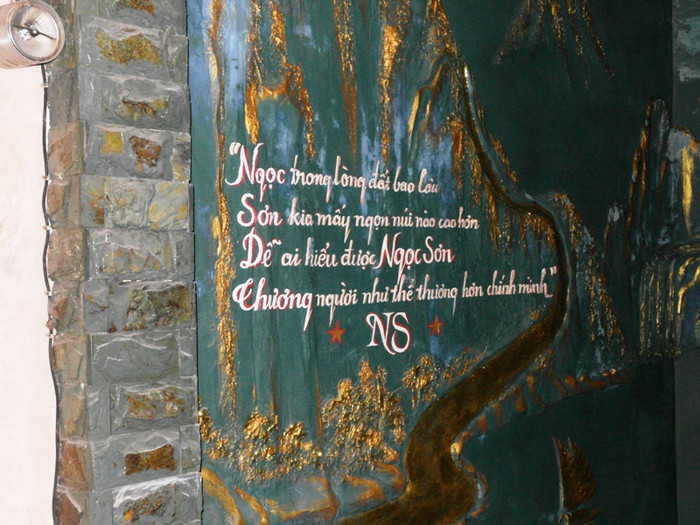 "Ngọc trong lòng đất bao lâu
Sơn kia mấy ngọn núi nao cao hơn
Dễ ai hiểu được Ngọc Sơn
Thương người như thể thương hơn chính mình"
NS